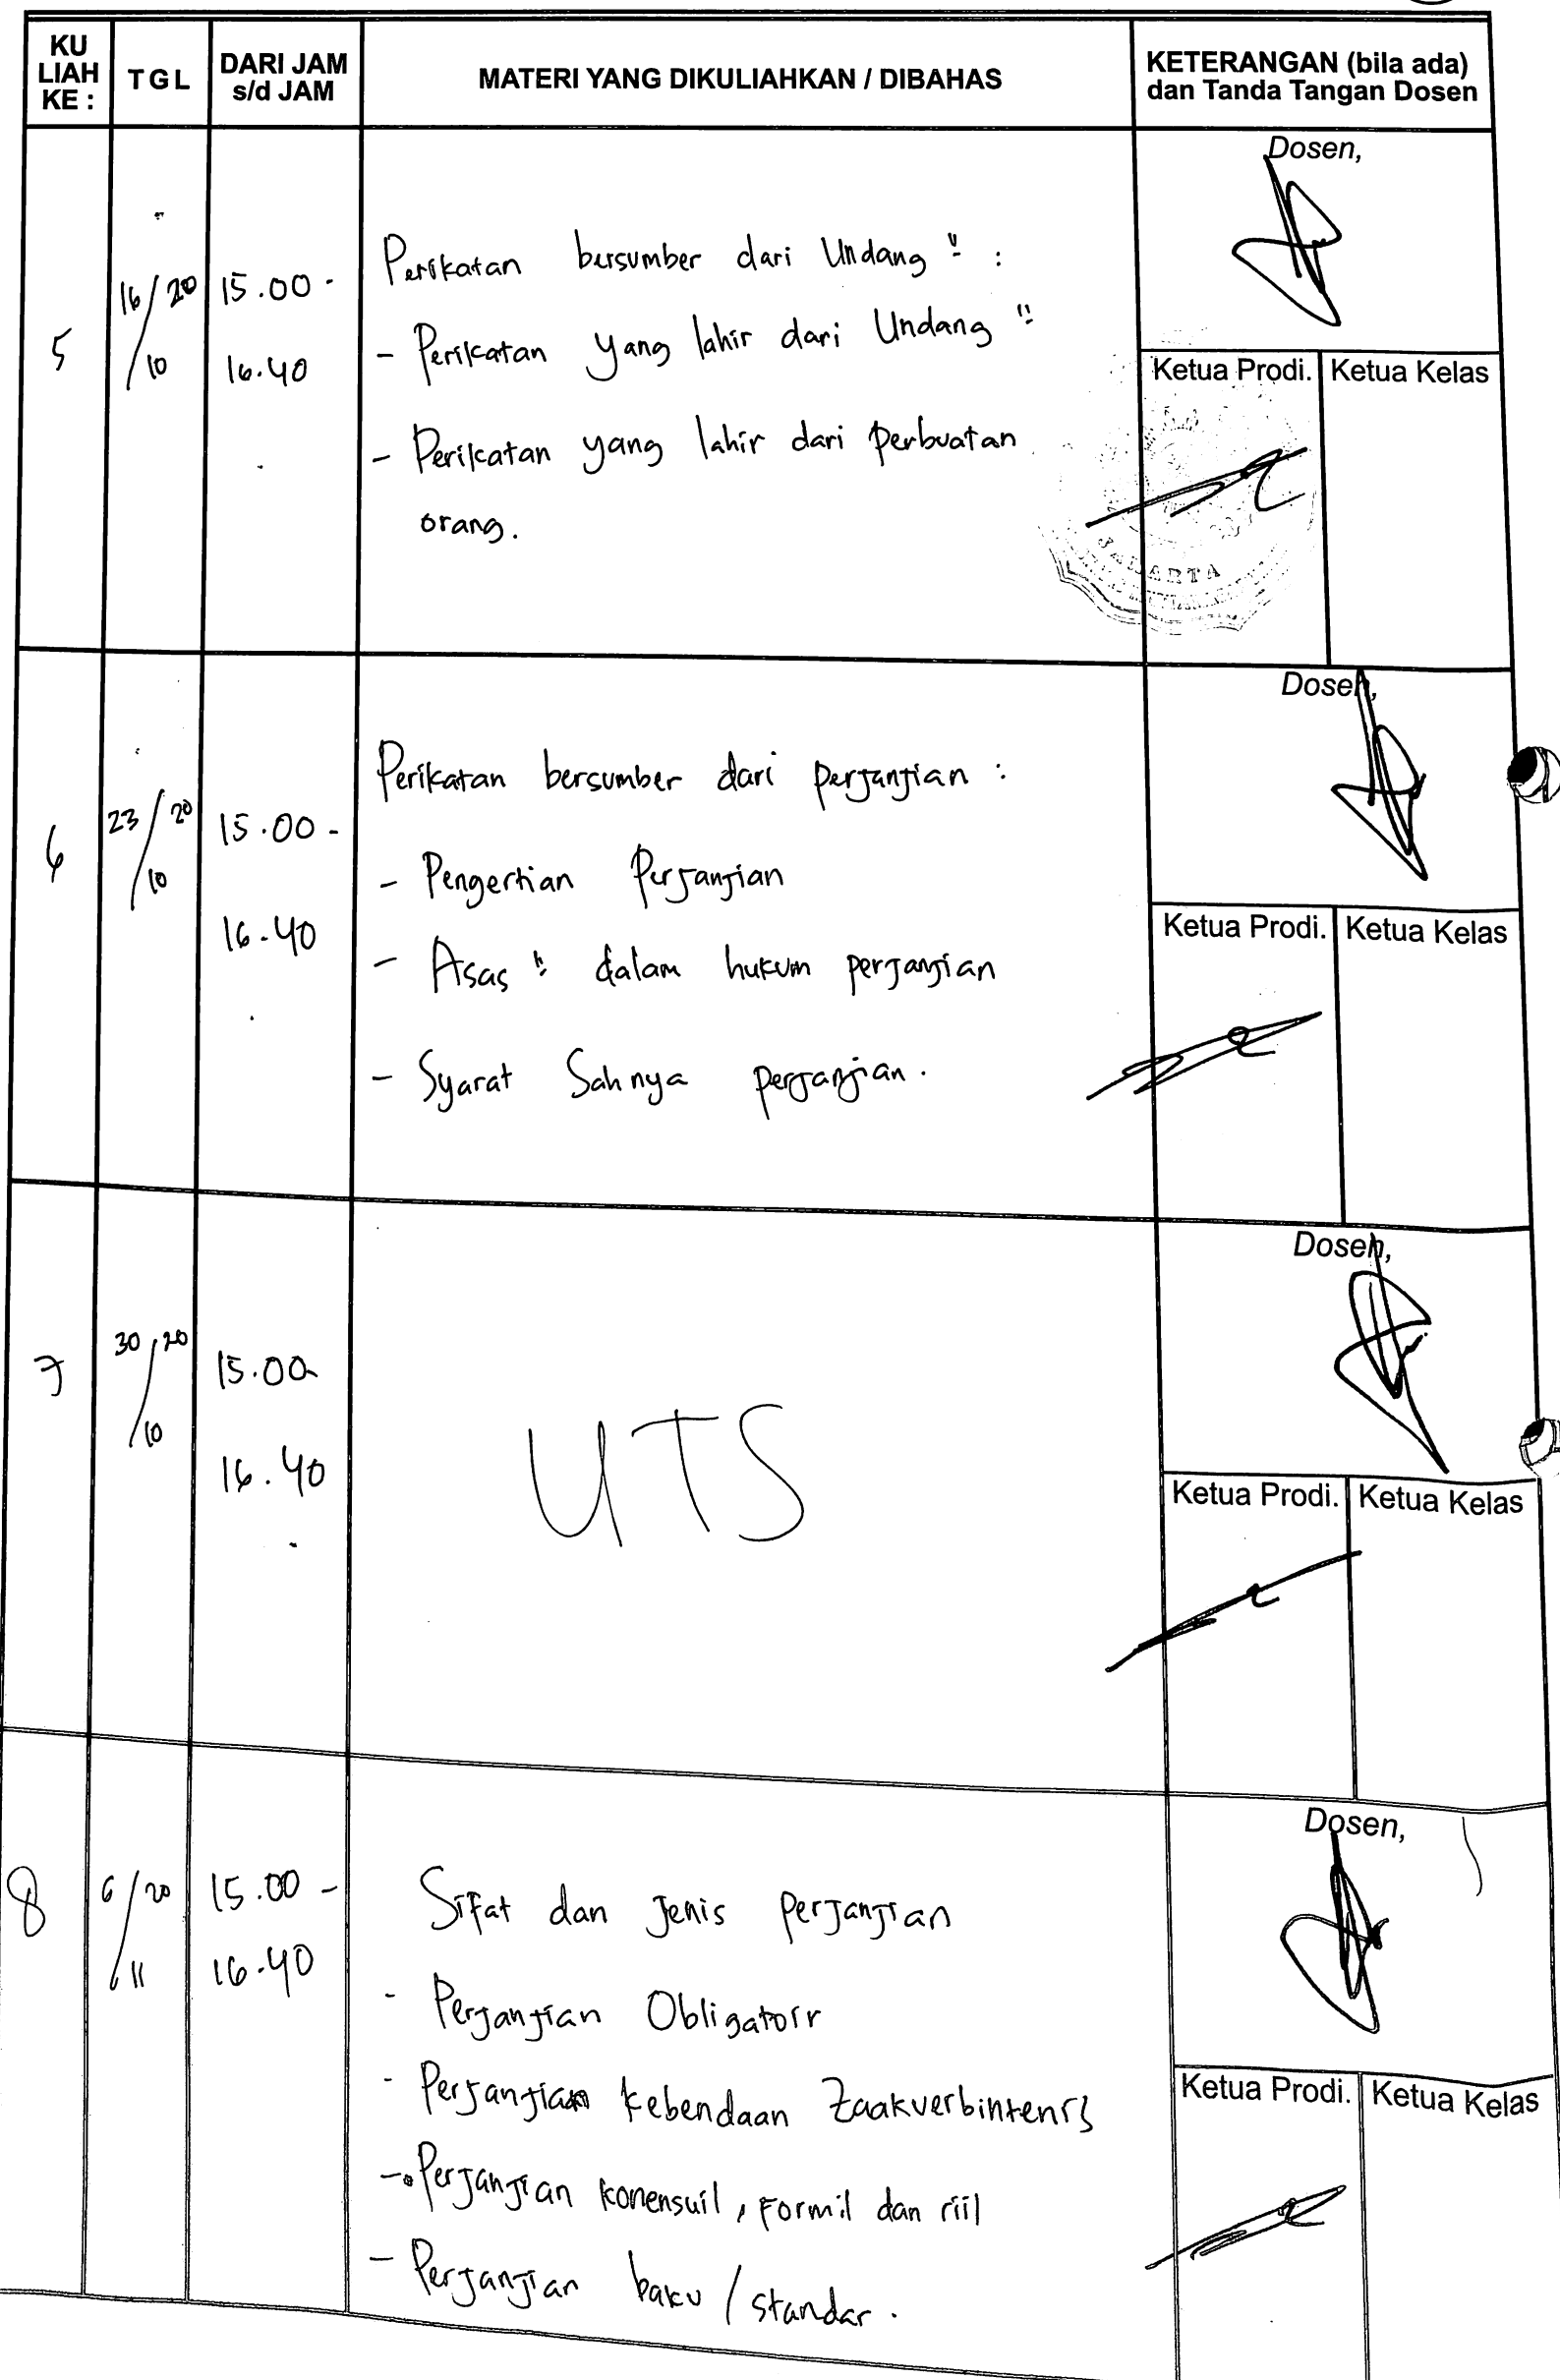 KU LIAH KE :
TGL
DARI JAM s/d JAM
MATERI YANG DIKULIAHKAN / DIBAHAS
KETERANGAN (bila ada) dan Tanda Tangan Dosen
5
16/20
/10
15.00 -
16.40
Perikatan bersumber dari Undang " :
- Perikatan yang lahir dari Undang "
- Perikatan yang lahir dari perbuatan
orang.
Dosen,
Ketua Prodi.
Ketua Kelas
6
23/20
/10
15.00 -
16.40
Perikatan bersumber dari perjanjian :
- Pengertian Perjanjian
- Asas " dalam hukum perjanjian
- Syarat Sahnya perjanjian.
Dosen,
Ketua Prodi.
Ketua Kelas
7
30/20
/10
15.00-
16.40
UTS
Dosen,
Ketua Prodi.
Ketua Kelas
8
6/20
/11
15.00 -
16.40
Sifat dan Jenis perjanjian
- Perjanjian Obligatoir
- Perjanjian kebendaan Zaakverbintenis
- Perjanjian konensuil, Formil dan riil
- Perjanjian baku / standar.
Dosen,
Ketua Prodi.
Ketua Kelas